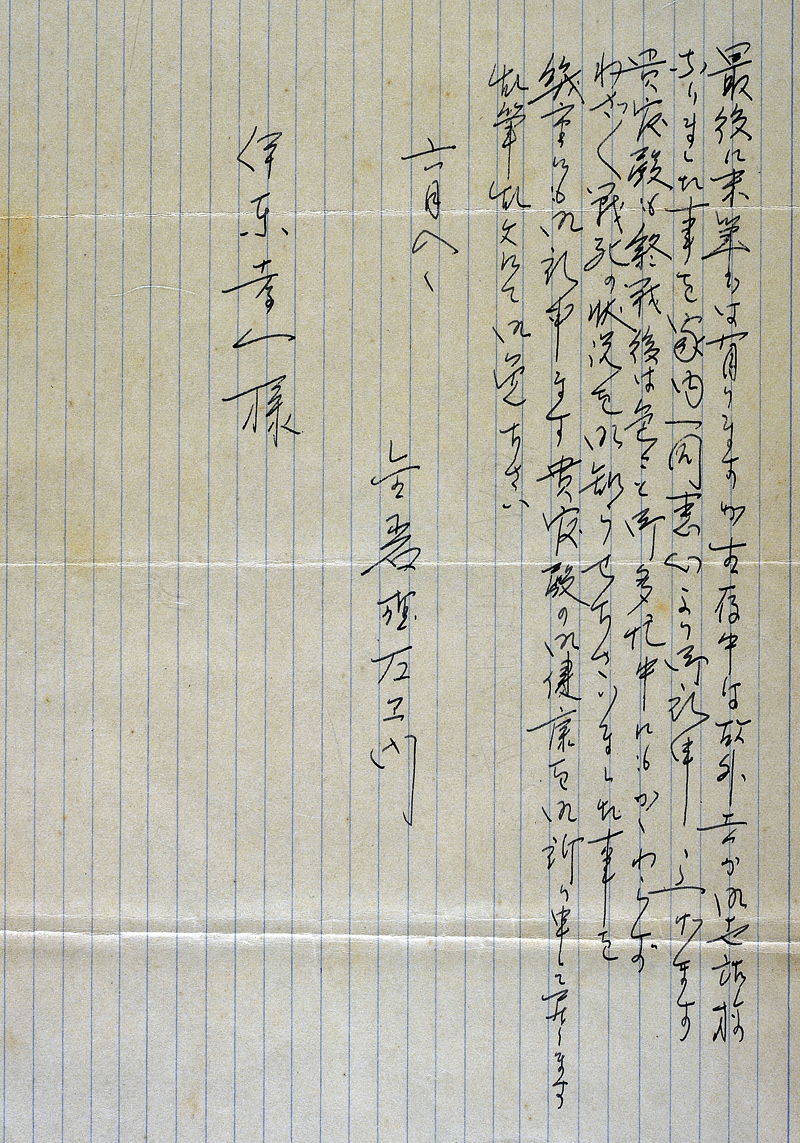 最後に末筆では有りますが生存中は格外共が御世話様
になりました事を家内一同衷心より御礼申し上げます
貴家殿も終戦後は色々と御多忙中にもかゝわらず
わざ〱戦死の状況を御知らせ下さいました事を
幾重にも御礼申します 貴家殿の御健康を御祈り申して居ります
乱筆乱文にて御免下さい
六月八日
金 左エ門
伊東孝一様